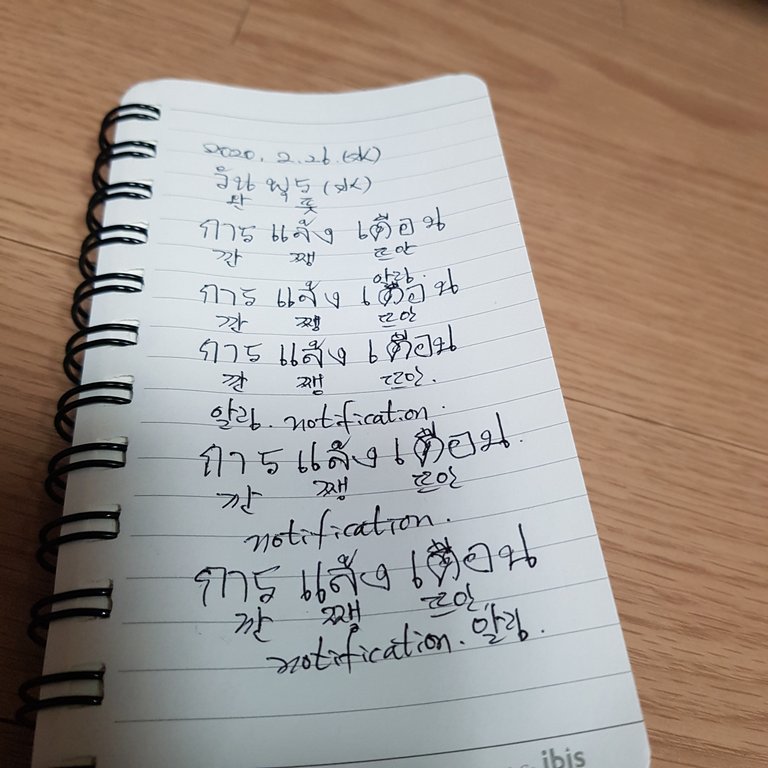 2020. 2. 26. (수)
วัน พุธ (수)
완 풋
การ แจ้ง เตือน
깐 쨍 뜨안
알림.
การ แจ้ง เตือน
깐 쨍 뜨안
การ แจ้ง เตือน
깐 쨍 뜨안.
알림. notification.
การ แจ้ง เตือน.
깐 쨍 뜨안
notification.
การ แจ้ง เตือน
깐 쨍 뜨안
notification. 알림.
ibis